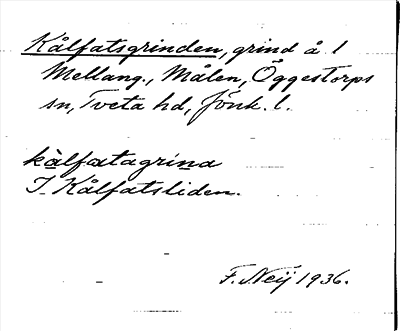 Kålfatsgrinden, grind å 1
Mellang., Målen, Öggestorps
sn, Tveta hd, Jönk. l.
kålfatagrina
I. Kålfatsliden.
F. Neij 1936.